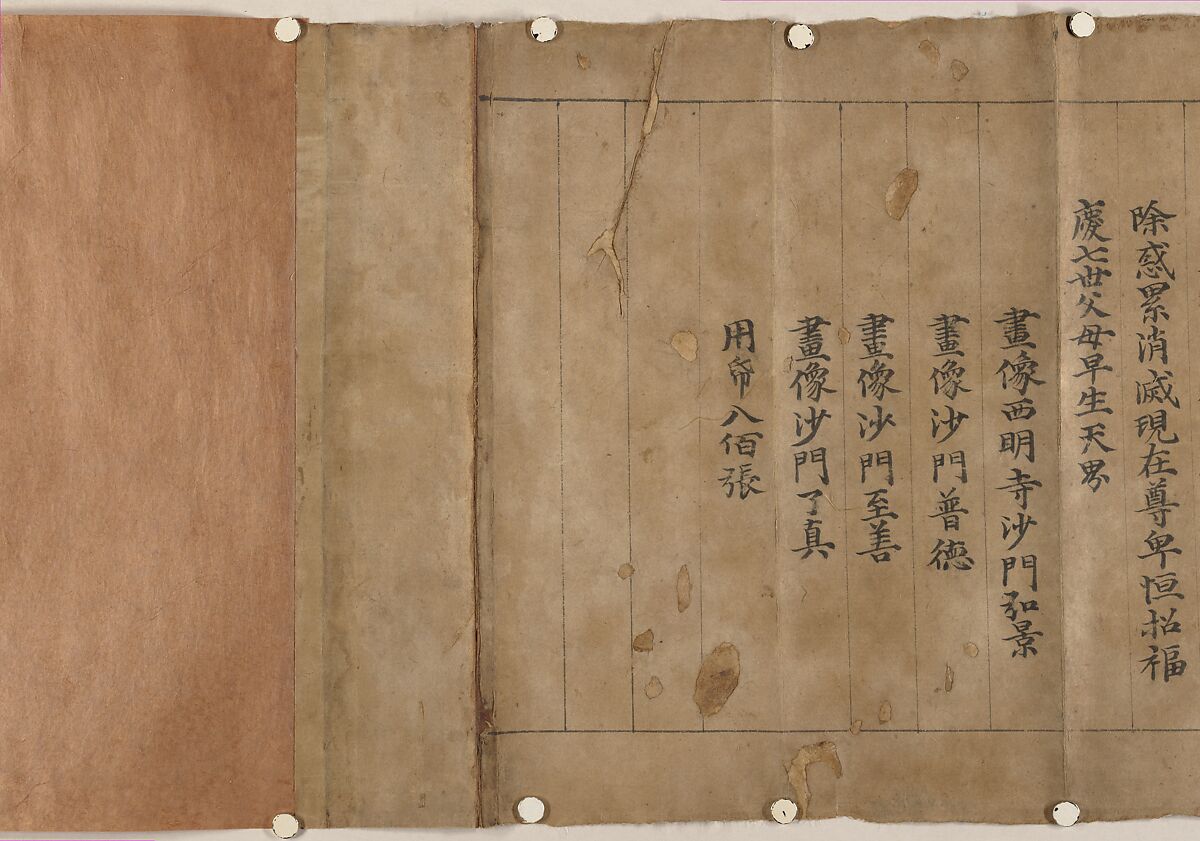 除惑累消滅現在尊卑恒招福
慶七世父母早生天界
畫像西明寺沙門弘景
畫像沙門普德
畫像沙門至善
畫像沙門了真
用帋八佰張